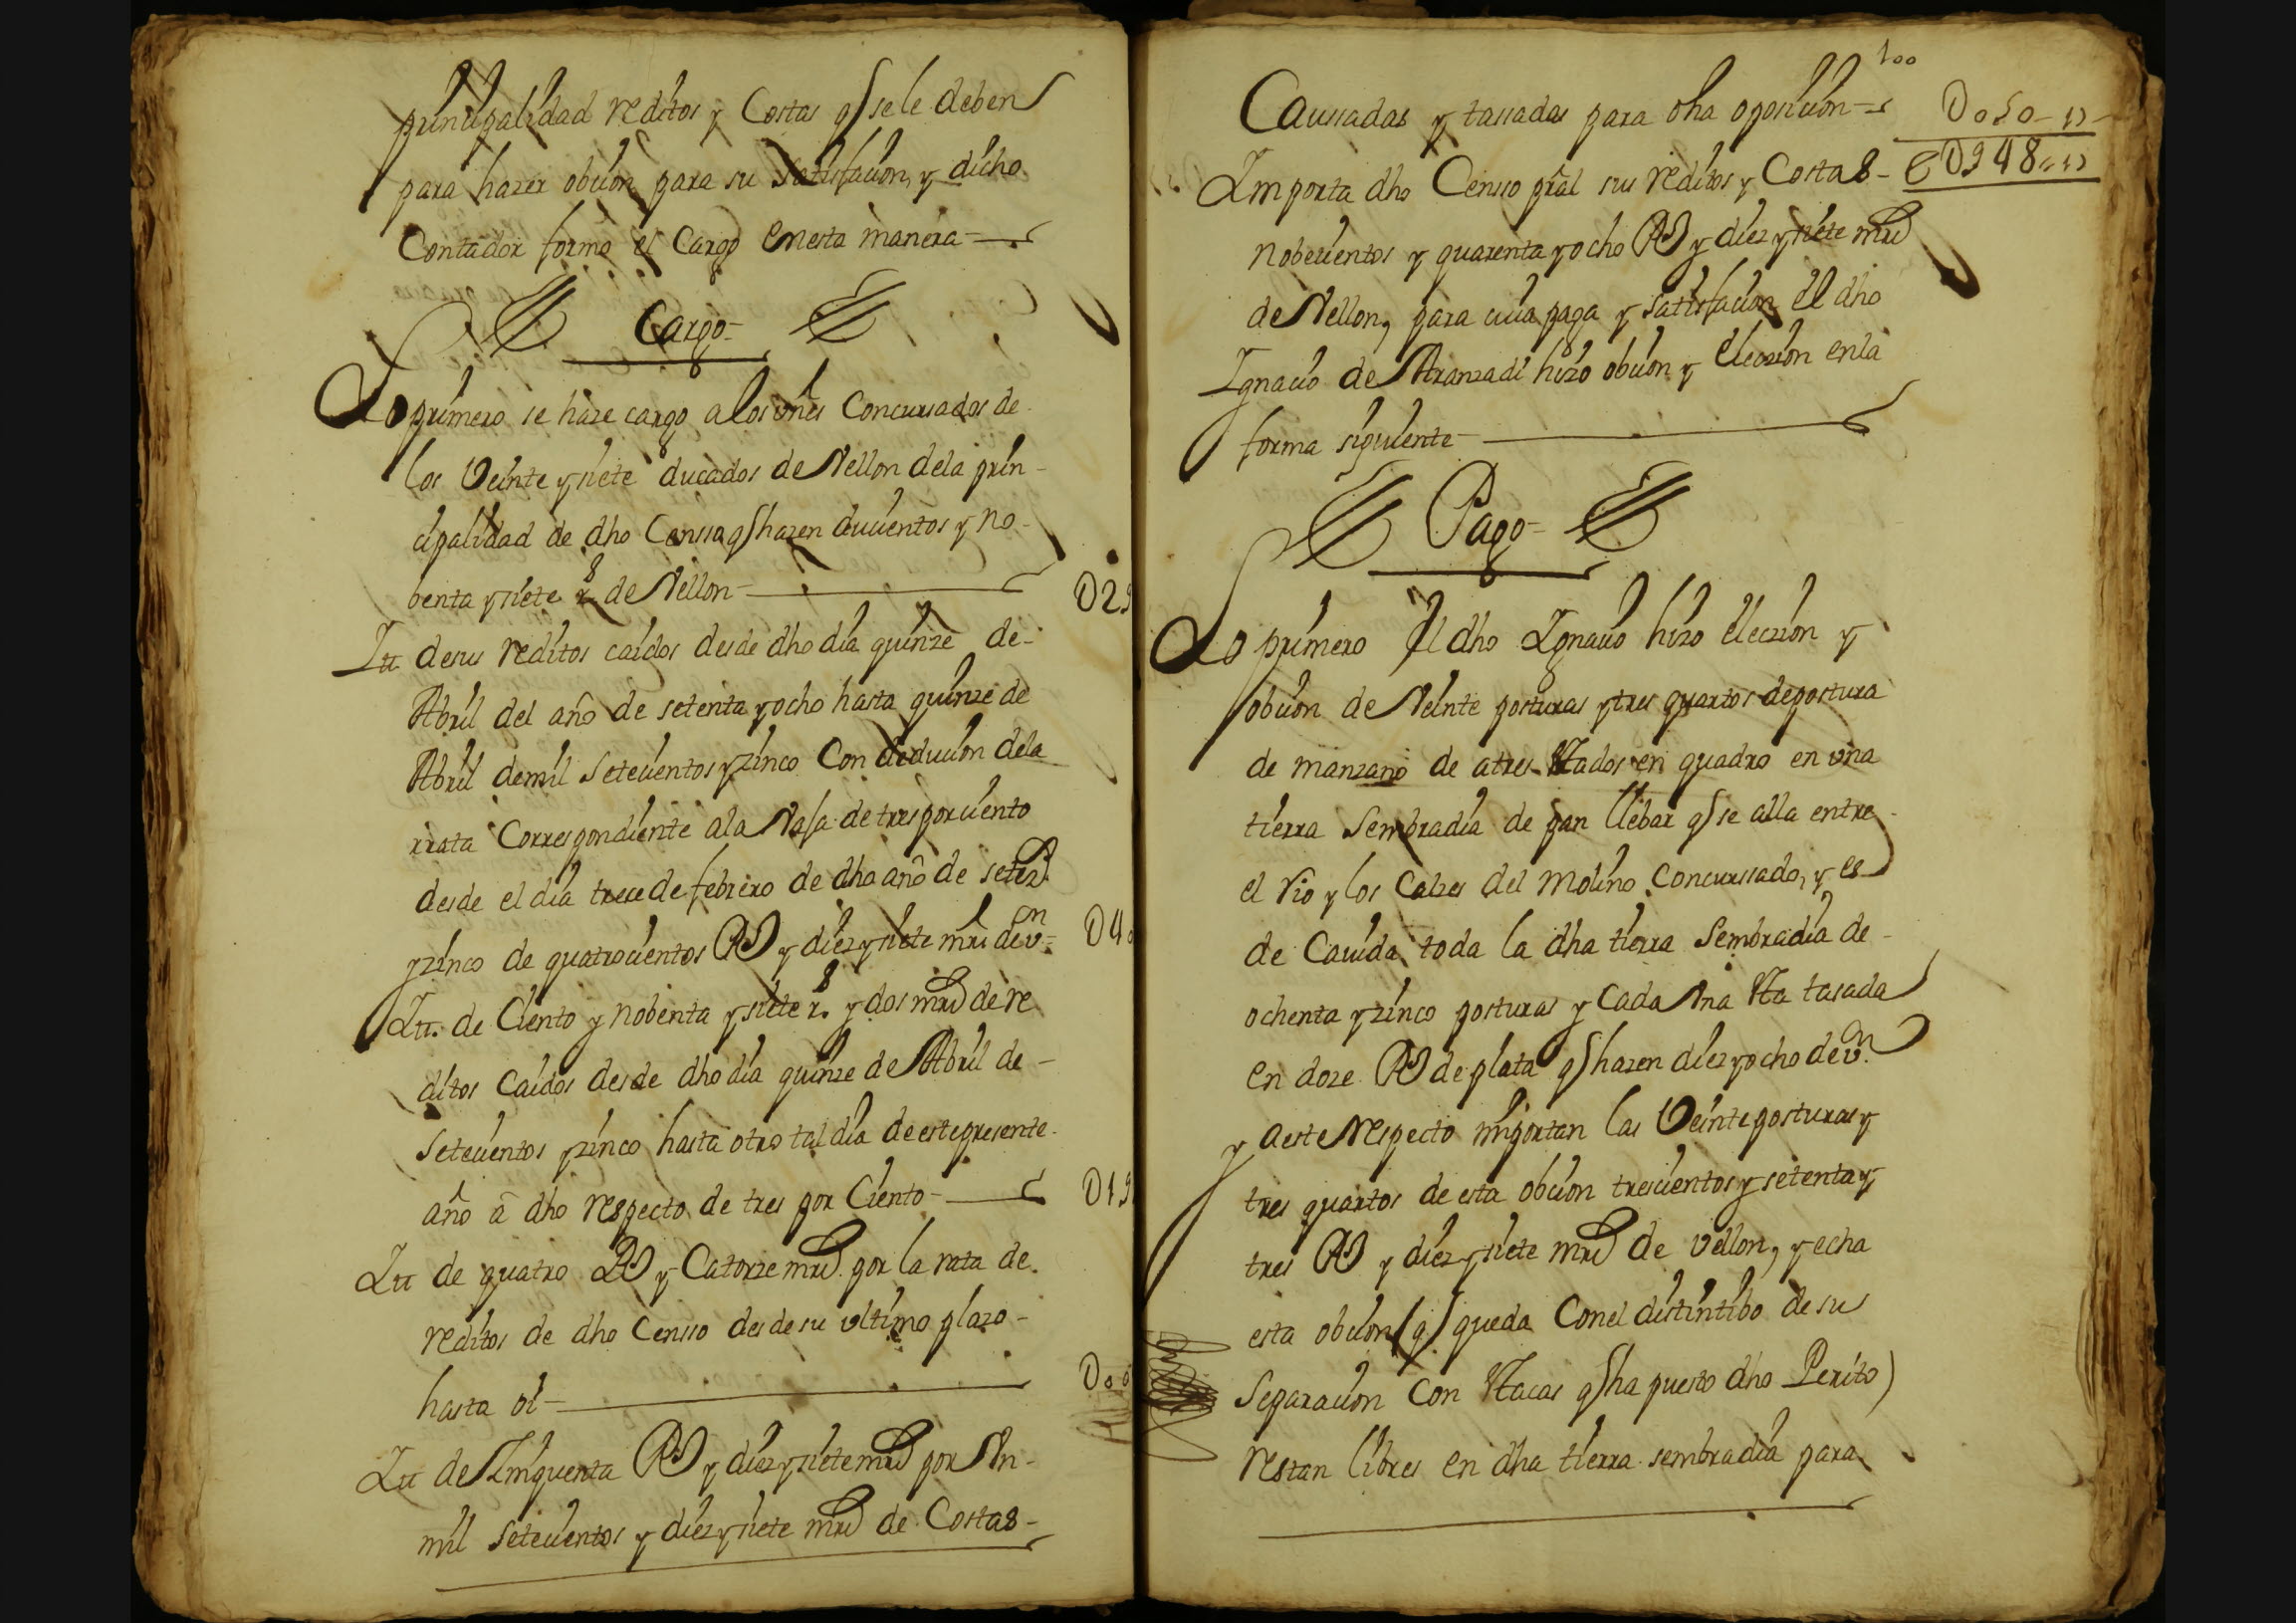 principalidad reditos y Costas q̃ se le deben
para hazer obcion para su satisfacion, y dicho
Contador formo el Cargo en esta manera
Cargo
Lo primero se haze cargo a los vnes Concursados de
los Veinte y siete ducados de Vellon de la prin-
cipalidad de dho Censso q̃ hazen ducientos y no-
benta y siete rs de Vellon D29
Itt de sus reditos caidos desde dho dia quinze de-
Abril del año de setenta y ocho hasta quinze de
Abril de mil Setecientos y zinco Con deducion de la
rrata Correspondiente a la Vaja de tres por ciento
desde el dia trece de febrero de dho año de setezs
y zinco de quatrocientos Rs y diez y siete mrs de vn D40
Itt. de Ciento y nobenta y siete rs. y dos mrs de re
ditos Caidos desde dho dia quinze de Abril de-
Setecientos y zinco hasta otro tal dia de este presente
año a dho respecto de tres por Ciento D19
Itt de quatro Rs y Catorze mrs. por la rata de
reditos de dho Censso desde su vltimo plazo-
hasta oi Doo
Itt de Zinquenta Rs y diez y siete mrs por Vn-
mil Setecientos y diez y siete mrs de Costas-
100
Caussadas y tassadas para dha oposicion Do50-17
Importa dho Censso pral sus reditos y Costas- D948,,17
nobecientos y quarenta y ocho Rs y diez y siete mrs
de Vellon, para cuia paga y satisfacion El dho
Ignacio de Aranzadi hizo obcion y Eleczion en la
forma siguiente
Pago
Lo primero El dho Ignacio hizo Eleczion y
obcion de Veinte posturas y tres quartos de postura
de manzano de a tres Estados en quadro en vna
tierra Sembradia de pan llebar q̃ se alla entre
el rio y los Calzes del Molino Concurssado, y es
de Cavida toda la dha tierra Sembradia de-
ochenta y zinco posturas y Cada Vna Esta tasada
en doze Rs de plata q̃ hazen diez y ocho de vn.
y a este respecto importan las Veinte posturas y
tres quartos de esta obcion trescientos y setenta y
tres Rs y diez y siete mrs de vellon, y echa
esta obcion (q̃ queda Con el distintibo de su
Separacion Con Estacas q̃ ha puesto dho Perito)
restan libres en dha tierra sembradia para